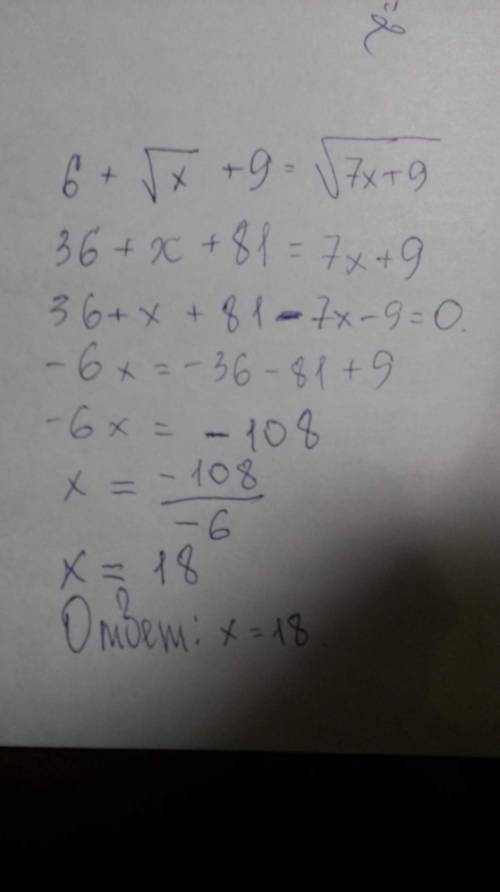 6 + √x + 9 = √(7x+9)
36 + x + 81 = 7x + 9
36 + x + 81 - 7x - 9 = 0.
-6x = -36 - 81 + 9
-6x = -108
x = -108/-6
x = 18
Ответ: x = 18.